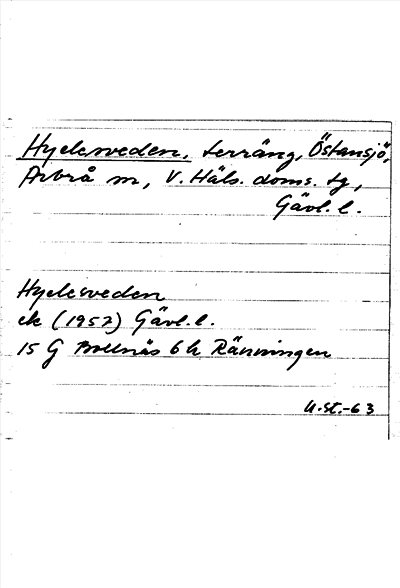 Hyelsveden, terräng, Östansjö,
Arbrå sn, V. Häls. doms. tg,
Gävl. l.
Hyelsveden
ek (1957) Gävl. l.
15 G Bollnäs 6 h Ränningen
U.St.-63